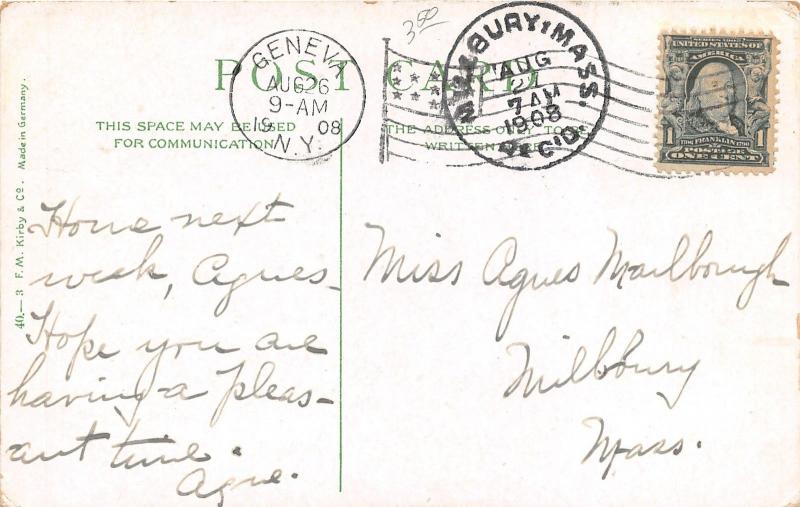 3.50
POST CARD
THIS SPACE MAY BE USED
FOR COMMUNICATION
THE ADDRESS ONLY TO
WRITTEN HERE
GENEVA
AUG 26
9-AM
1908
N.Y.
MILLBURY, MASS.
AUG
27
7 AM
1908
REC'D.
SERIES 1902
UNITED STATES OF
AMERICA
1 FRANKLIN 1
POSTAGE
ONE CENT
40.—3 F. M. Kirby & Co. Made in Germany.
Home next
week, Agnes-
Hope you are
having a pleas-
ant time.
Miss Agnes Marlbough
Millbury
Mass.